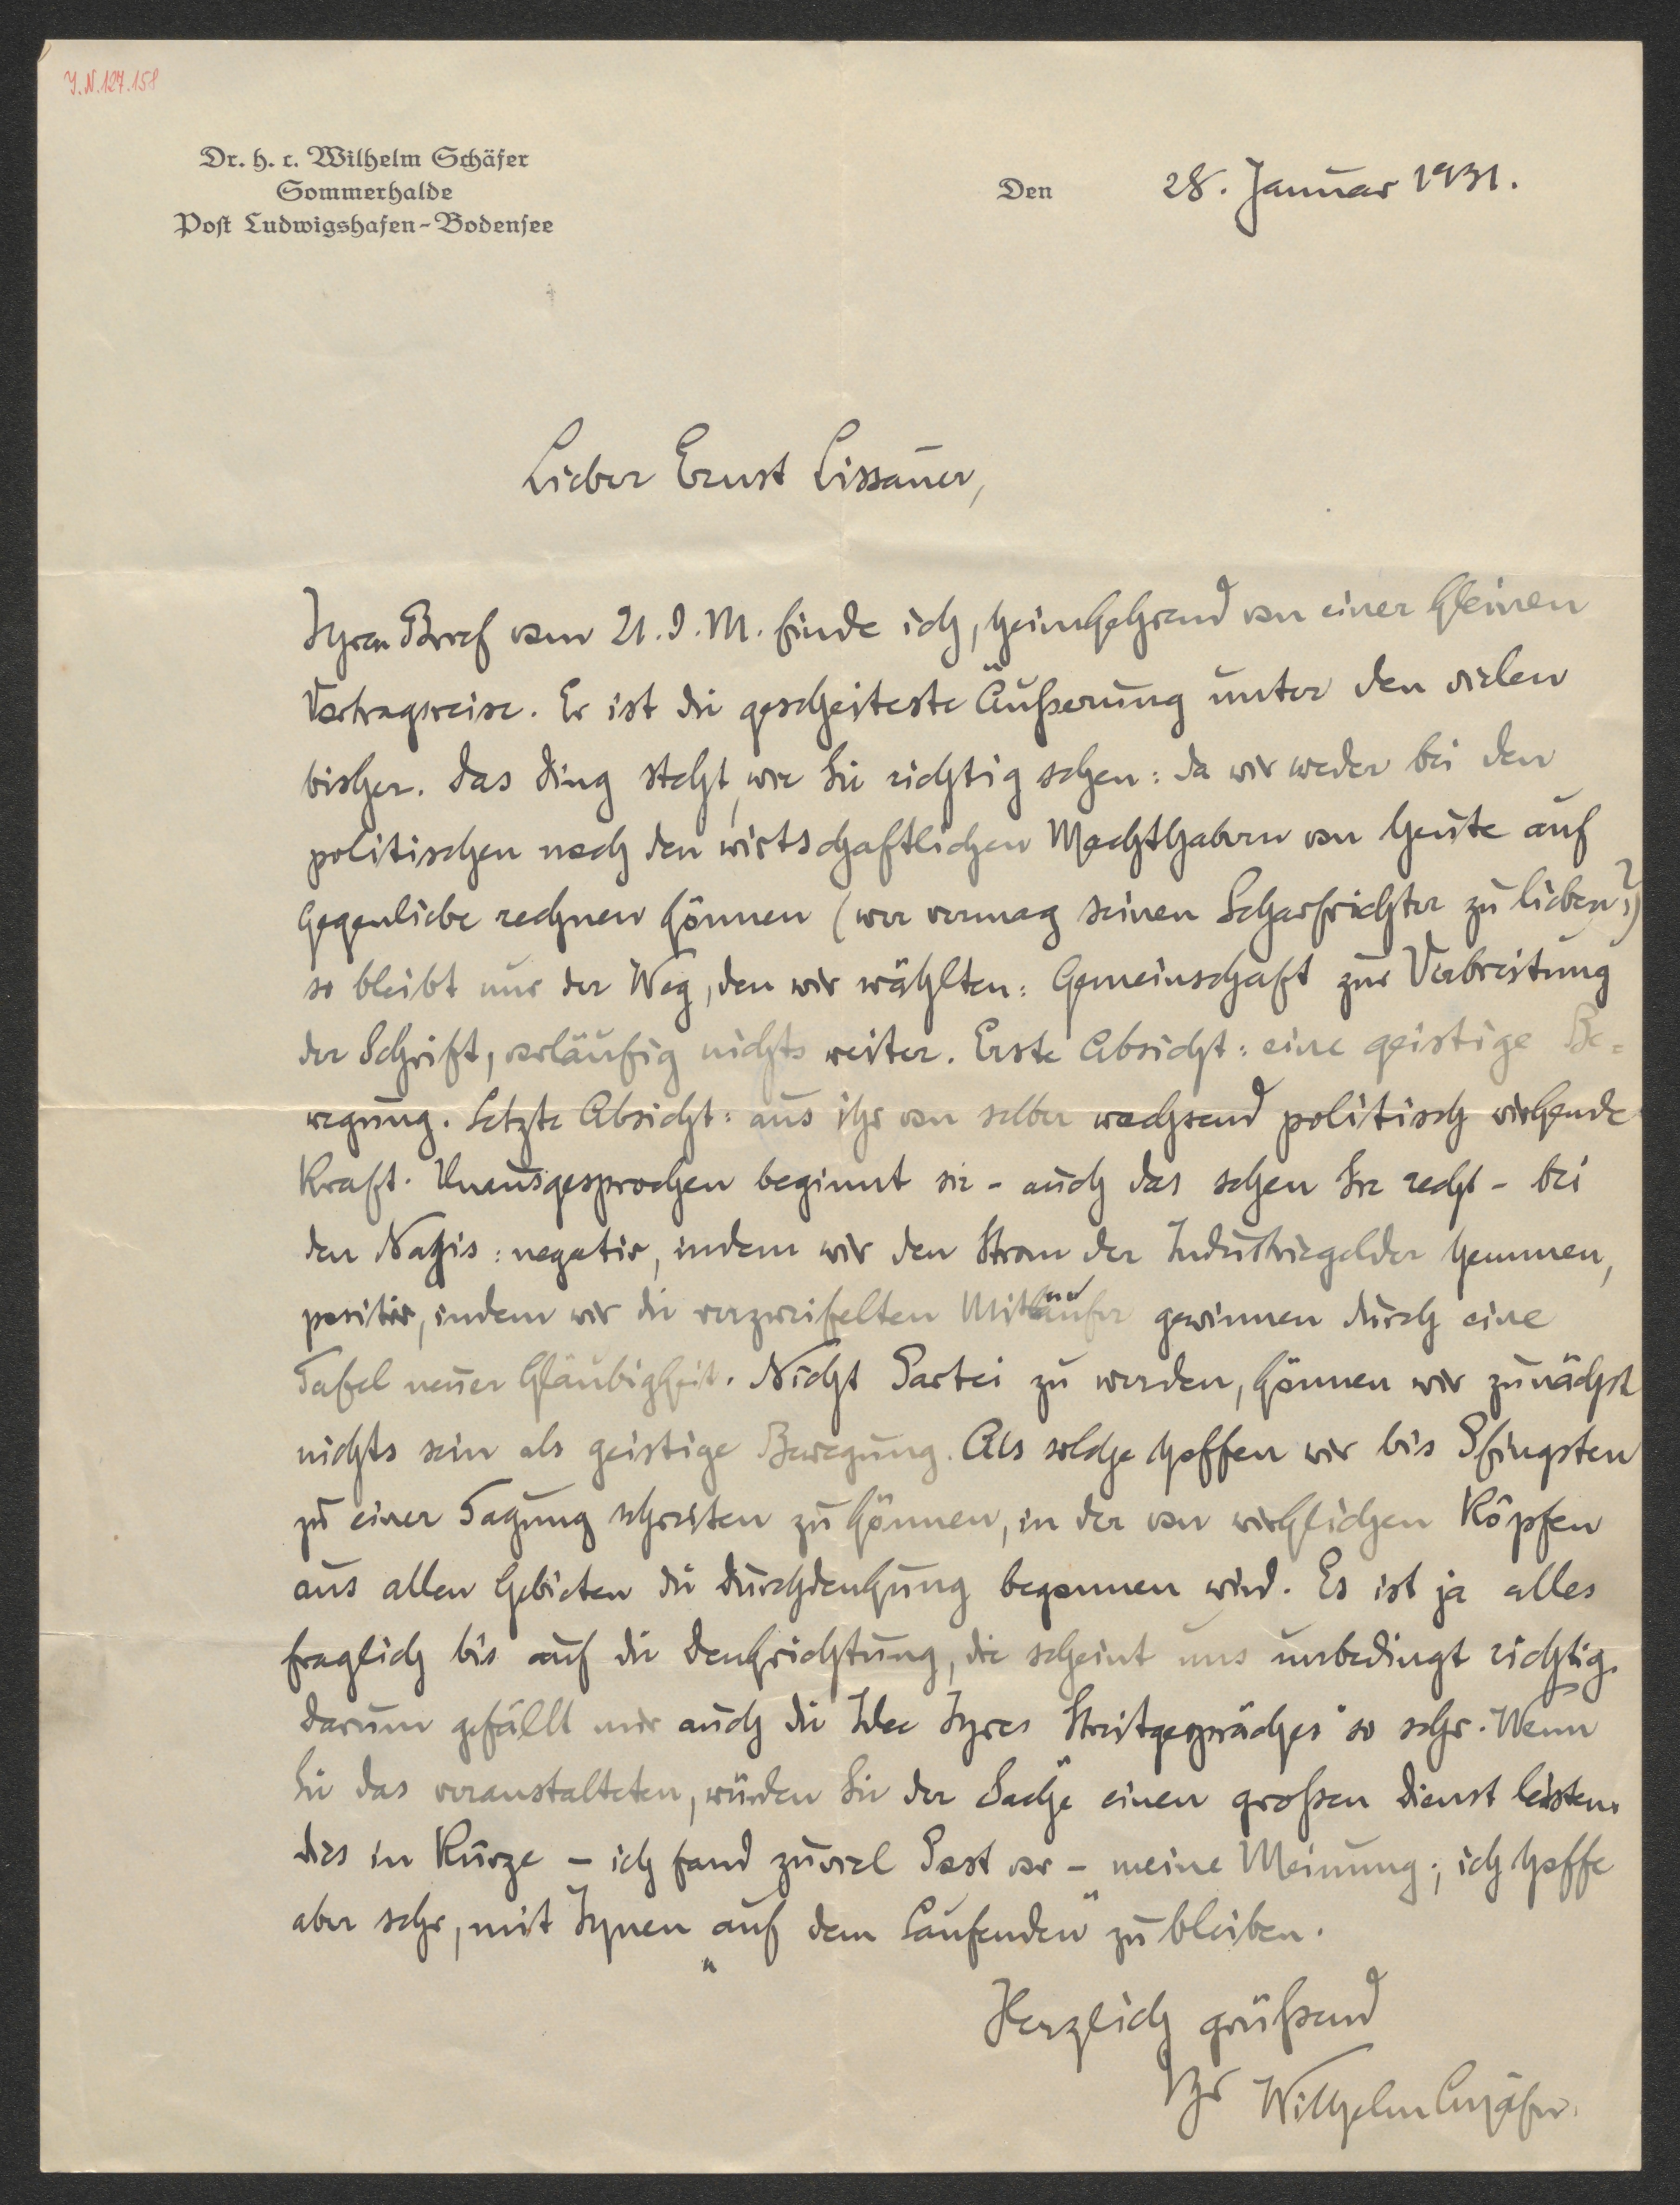 J.N.127.158
Dr. h. c. Wilhelm Schäfer
Sommerhalde
Post Ludwigshafen-Bodensee
Den 28. Januar 1931.
Lieber Ernst Lissauer,
Ihren Brief vom 21. d. M. finde ich, heimkehrend von einer kleinen
Vortragsreise. Er ist die gescheiteste Äußerung unter den vielen
bisher. Das Ding steht, wie Sie richtig sehen: da wir weder bei den
politischen noch den wirtschaftlichen Machthabern von heute auf
Gegenliebe rechnen können (wer vermag seinen Scharfrichter zu lieben?)
so bleibt nur der Weg, den wir wählten: Gemeinschaft zur Verbreitung
der Schrift, vorläufig nichts weiter. Erste Absicht: eine geistige Be=
wegung. Letzte Absicht: aus ihr von selber wachsend politisch wirkende
Kraft. Unausgesprochen beginnt sie - auch das sehen Sie recht - bei
den Nazis: negativ, indem wir den Strom der Industriegelder hemmen,
positiv, indem wir die verzweifelten Mitläufer gewinnen durch eine
Tafel neuer Gläubigkeit. Nicht Partei zu werden, können wir zunächst
nichts sein als geistige Bewegung. Als solche hoffen wir bis Pfingsten
zu einer Tagung schreiten zu können, in der von wirklichen Köpfen
aus allen Gebieten die Durchdenkung begonnen wird. Es ist ja alles
fraglich bis auf die Denkrichtung, die scheint uns unbedingt richtig.
Darum gefällt mir auch die Idee Ihres Streitgespräches" so sehr. Wenn
Sie das veranstalteten, würden Sie der Sache einen großen Dienst leisten.
Dies in Kürze - ich fand zuviel Post vor - meine Meinung; ich hoffe
aber sehr, mit Ihnen „auf dem Laufenden" zu bleiben.
Herzlich grüßend
Ihr Wilhelm Schäfer.